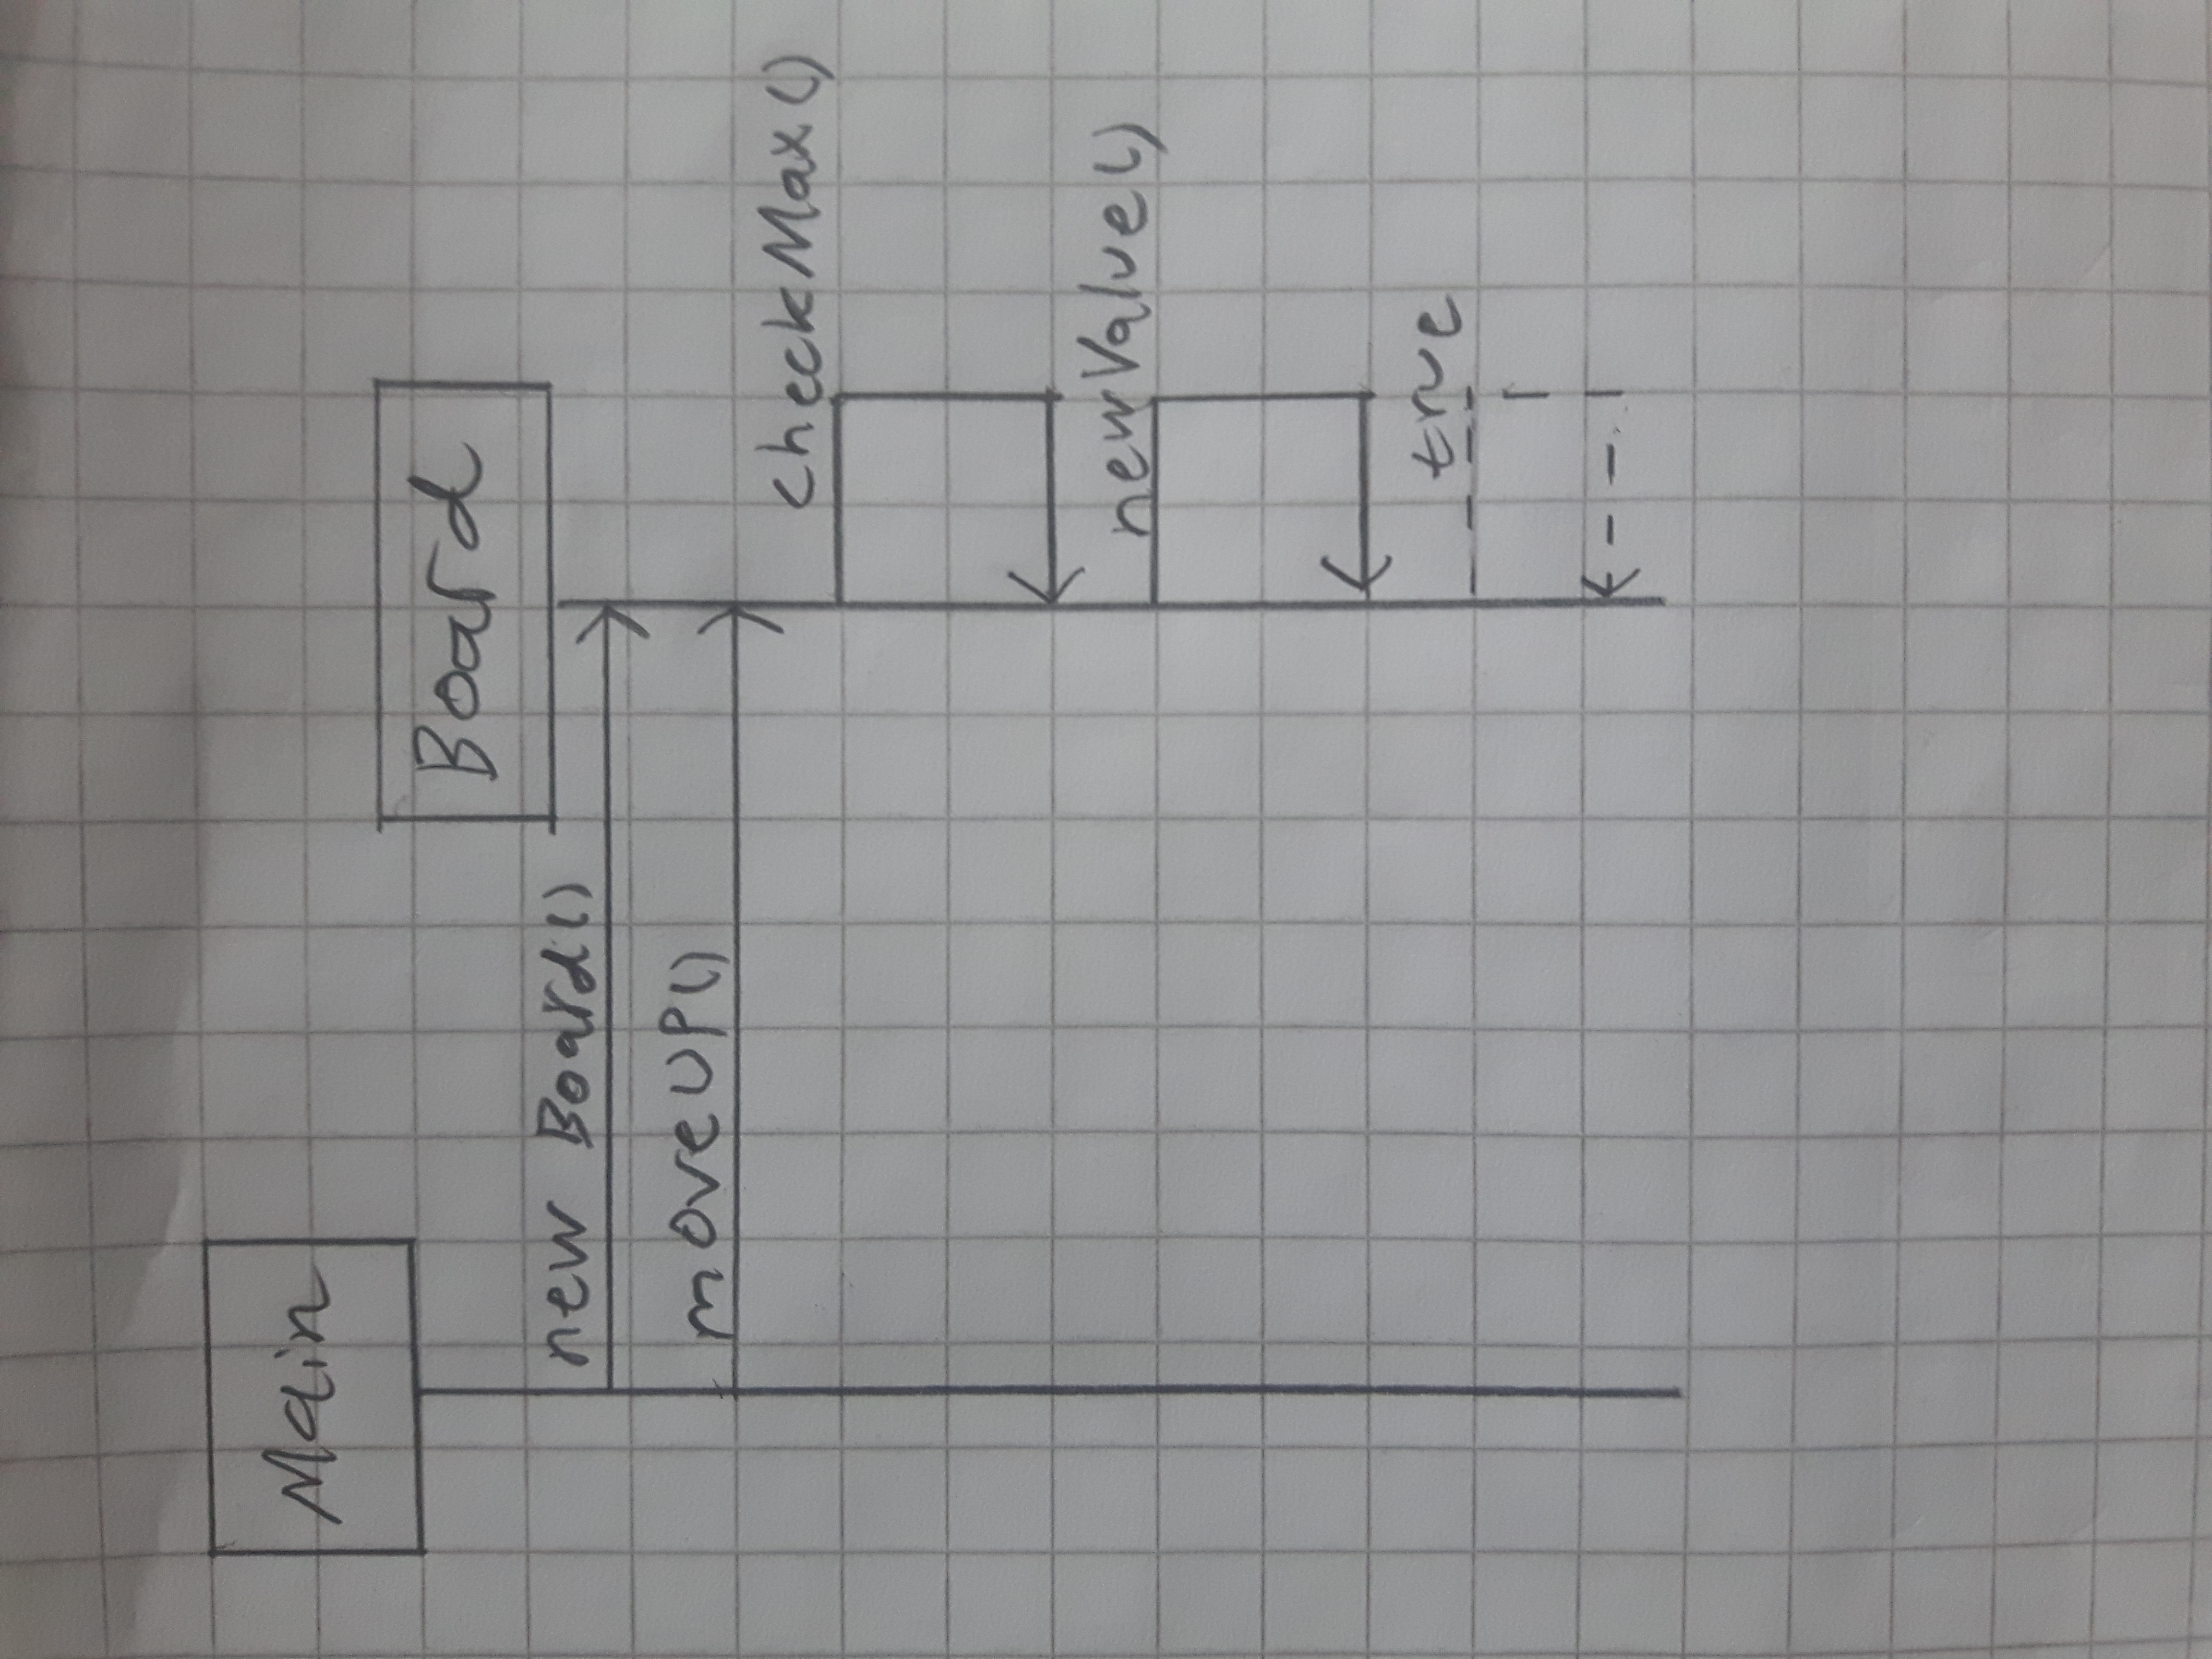 Main
Board
new Board()
moveUP()
checkMax()
newValue()
true